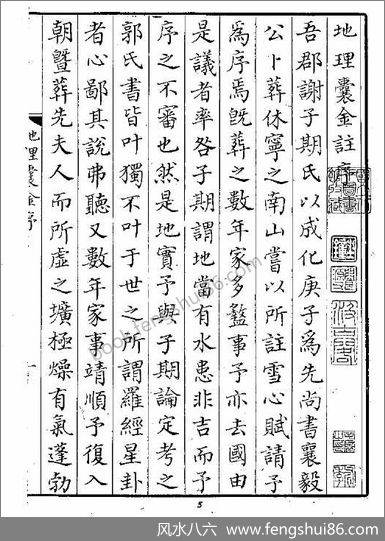 地理囊金註序
吾郡謝子期氏以成化庚子為先尚書襄毅
公卜葬休寧之南山嘗以所註雪心賦請予
為序焉旣葬之數年家多盭事予亦去國由
是議者率咎子期謂地當有水患非吉而予
序之不審也然是地實予與子期論定考之
郭氏書皆叶獨不叶于世之所謂羅經星卦
者心鄙其說弗聽又數年家事靖順予復入
朝暨葬先夫人而所虛之壙極燥有氣蓬勃
地理囊金序
一
5
book.fengshui86.com
风水八六 - www.fengshui86.com